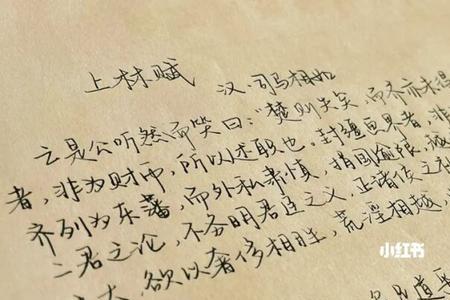 上林赋 汉 司马相如
亡是公听然而笑曰:“楚则失矣,而齐亦未得
者,非为财币,所以述职也。封疆画界者,非
齐列为东藩,而外私肃慎,捐国逾限,越
二君之论,不务明君臣之义,正诸侯之礼
欲以奢侈相胜,荒淫相越,
小红书